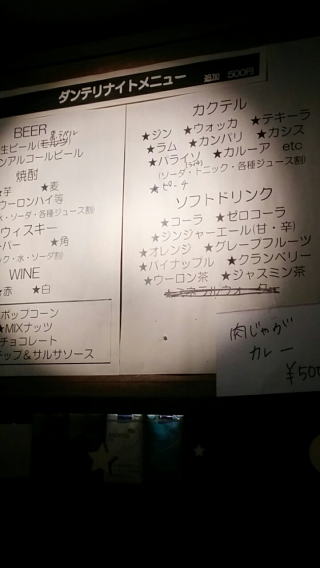 ダンテリナイトメニュー 追加 500円
BEER
生ビール(モルツ)
ンアルコールビール
焼酎
★芋 ★麦
ウーロンハイ等
水・ソーダ・各種ジュース割)
ウィスキー
バー ★角
ック・水・ソーダ割)
WINE
★赤 ★白
ポップコーン
★MIXナッツ
チョコレート
チップ&サルサソース
カクテル
★ジン ★ウォッカ ★テキーラ
★ラム ★カンパリ ★カシス
★パライソ ★カルーア etc
(ソーダ・トニック・各種ジュース割)
★ピーチ
ソフトドリンク
★コーラ ★ゼロコーラ
★ジンジャーエール(甘・辛)
★オレンジ ★グレープフルーツ
★パイナップル ★クランベリー
★ウーロン茶 ★ジャスミン茶
★ミネラルウォーター
肉じゃが
カレー
¥500